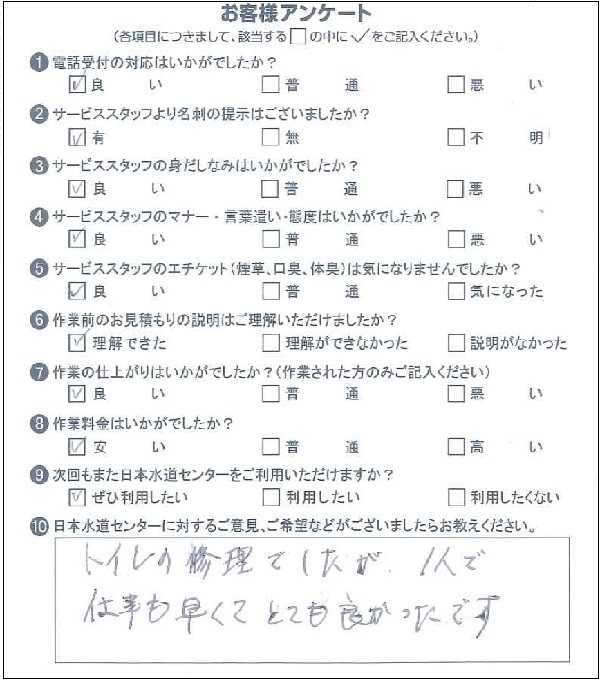 お客様アンケート
(各項目につきまして、該当する□の中に✓をご記入ください。)
❶電話受付の対応はいかがでしたか？
☑良い □普通 □悪い
❷サービススタッフより名刺の提示はございましたか？
☑有 □無 □不明
❸サービススタッフの身だしなみはいかがでしたか？
☑良い □普通 □悪い
❹サービススタッフのマナー・言葉遣い・態度はいかがでしたか？
☑良い □普通 □悪い
❺サービススタッフのエチケット(煙草、口臭、体臭)は気になりませんでしたか？
☑良い □普通 □気になった
❻作業前のお見積もりの説明はご理解いただけましたか？
☑理解できた □理解ができなかった □説明がなかった
❼作業の仕上がりはいかがでしたか？(作業された方のみご記入ください)
☑良い □普通 □悪い
❽作業料金はいかがでしたか？
☑安い □普通 □高い
❾次回もまた日本水道センターをご利用いただけますか？
☑ぜひ利用したい □利用したい □利用したくない
❿日本水道センターに対するご意見、ご希望などがございましたらお教えください。
トイレの修理でしたが、1人で
仕事も早くてとても良かったです